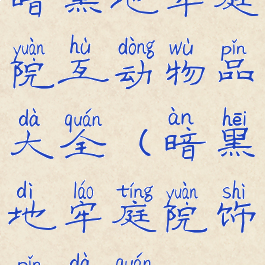 暗黑地牢庭
yuàn hù dòng wù pǐn
院互动物品
dà quán àn hēi
大全（暗黑
dì láo tíng yuàn shì
地牢庭院饰
pǐn dà quán